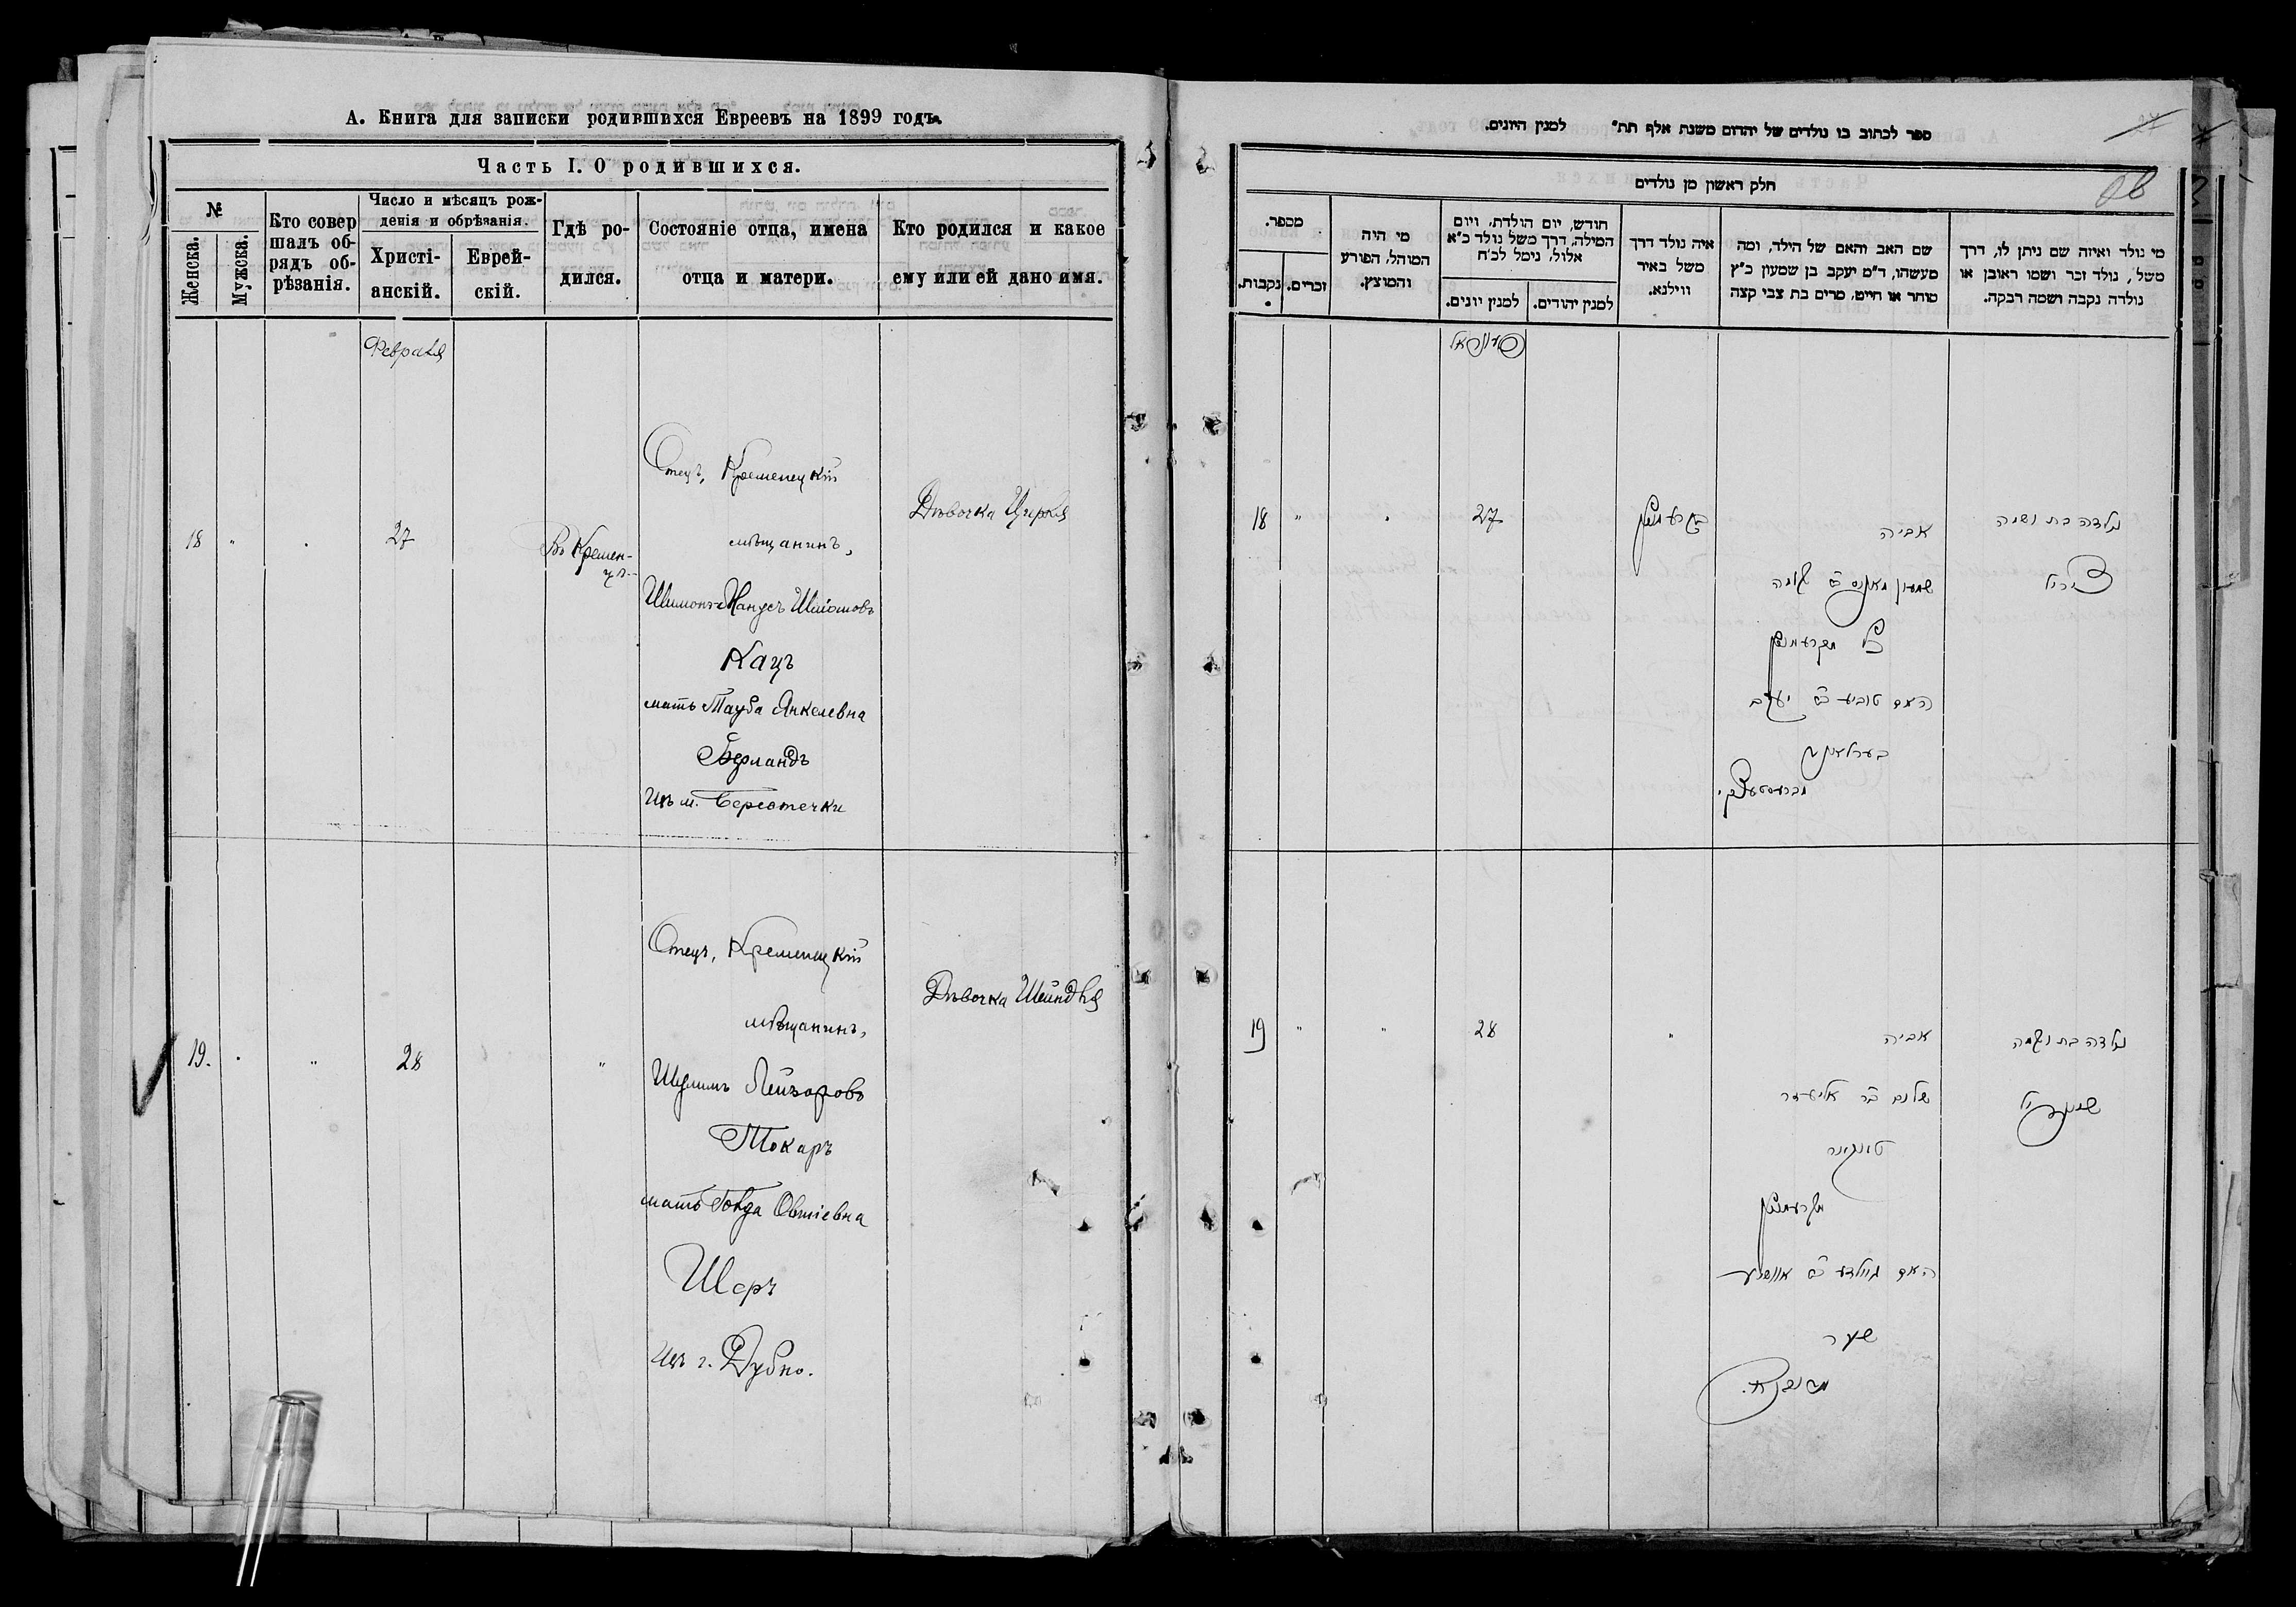 А. Книга для записки родившихся Евреевъ на 1899 годъ.
Часть I. О родившихся.
№
Женска.
Мужска.
Кто совер
шалъ об-
рядъ об-
рѣзанія.
Число и мѣсяцъ рож-
денія и обрѣзанія.
Христі-
анскій.
Еврей-
скій.
Гдѣ ро-
дился.
Состояніе отца, имена
отца и матери.
Кто родился и какое
ему или ей дано имя.
Февраля
18 " . 27
Въ Кремен-
цѣ
Отецъ, Кременецкій
мѣщанинъ,
Шимонъ-Манусъ
Кацъ
мать Тауба Янкелевна
Берландъ
изъ м. Берестечки
Дѣвочка Цирля
19. . " 28 "
Отецъ, Кременецкій
мѣщанинъ,
Шулимъ Лейзоровъ
Токаръ
мать Голда Овшіевна
Шеръ
изъ г. Дубно.
Дѣвочка Шейндля
ספר לכתוב בו נולדים של יהדום משנת אלף תת" למנין היונים.
חלק ראשון מן נולדים
מספר.
נקבות.
זכרים.
מי היה
המוהל, הפורע
והמוצץ.
חודש, יום הולדת, ויום
המילה, דרך משל נולד כ"א
אלול, נימל לכ"ח
למנין יונים.
למנין יהודים.
איה נולד דרך
משל באיר
ווילנא.
שם האב והאם של הילד, ומה
מעשהו, ד"מ יעקב בן שמעון כ"ץ
סוחר או חייט, מרים בת צבי קצה
מי נולד ואיזה שם ניתן לו, דרך
משל, נולד זכר ושמו ראובן או
נולדה נקבה ושמה רבקה.
18 " . 27
אביה
כץ
האם יעקב
נולדה בת ושמה
צירל
19 " " 28 "
אביה
שלום בר אליעזר
האם גאלדע
שער
נולדה בת
שיינדיל